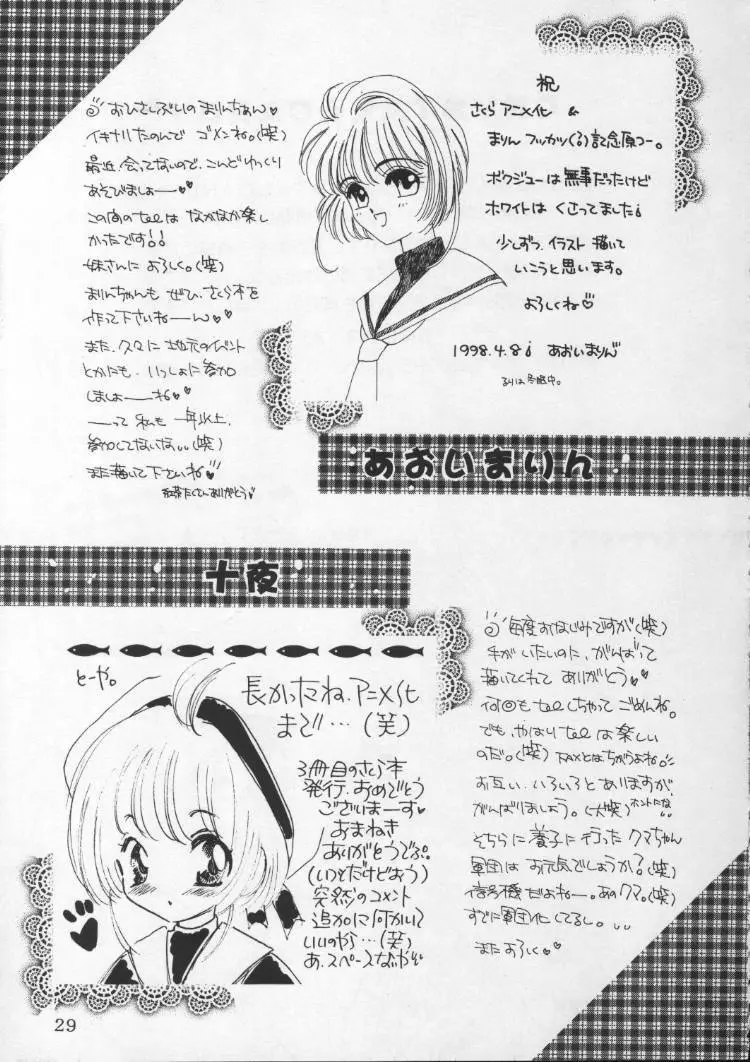 おひさしぶりの まりんちゃん♥
イキナリたのんで ゴメンね。(笑)
最近、会ってないので、こんどゆっくり
あそびましょー♥♥
この間のtelは なかなか楽し
かったです!!
妹さんに よろしく。(笑)
まりんちゃんも ぜひ、さくら本を
作って下さいねーん♥♥
また、久々に 地元のイベント
とかにも、いっしょに参加
しましょーね♥♥
――って 私も 一年以上、
参加してないな、、(笑)
また描いて下さいね♥
お茶たくさんありがとう♥
祝
さくら アニメ化 &
まりん フッカツ(る)記念原コー。
ボクジューは 無事だったけど
ホワイトは くさってました
少しずつ、イラスト 描いて
いこうと 思います。
よろしくね♡
1998.4.8 あおいまりん
あおいまりん
十夜
とーや。
長かったね、アニメ化
まで…(笑)
3冊目のさくら本
発行、おめでとう
ございまーす♥
おまねき
ありがとうでぷ。
(いつとだけどおう)
突然のコメント
追加に何かいて
いいのやら…(笑)
あ、スペースなかや
毎度おなじみですが(笑)
手がいたいのに、がんばって
描いてくれて ありがとう♥
何回も telしちゃって ごめんね。
でも、やはり telは 楽しい
のだ。(笑) FAXとはちがうよね
お互い、いろいろとありますが
がんばりましょう。(大笑)ホントにな
そちらに 養子に 行った クマちゃん
軍団は お元気でしょうか?(笑)
信号機だよねー。あのクマ。(笑)
すでに軍団化してるし。、、
また よろしく♥♥
29